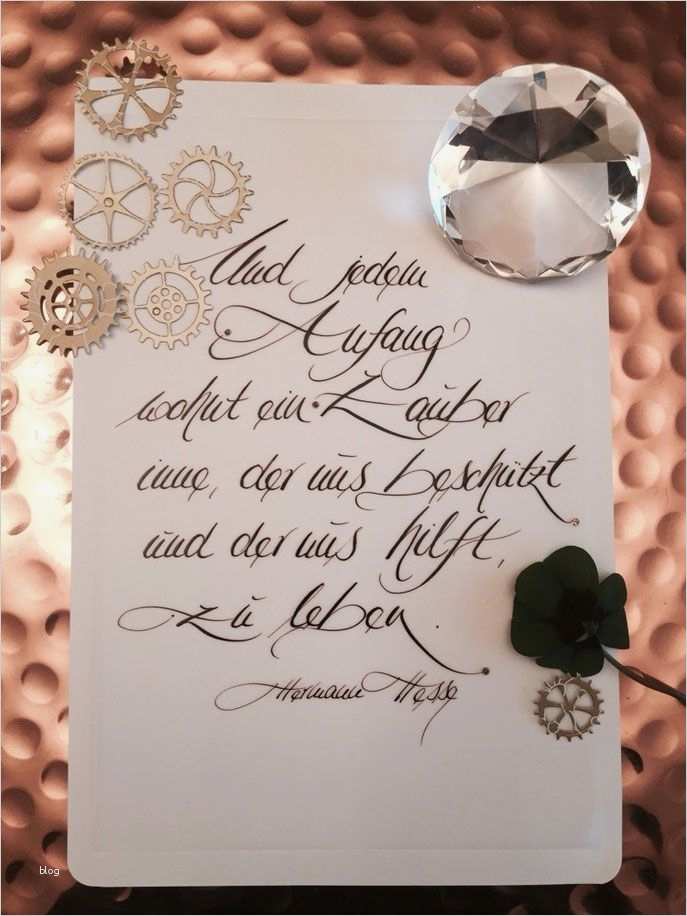 Und jedem
Anfang
wohnt ein Zauber
inne, der uns beschützt
und der uns hilft,
zu leben.
Hermann Hesse
blog